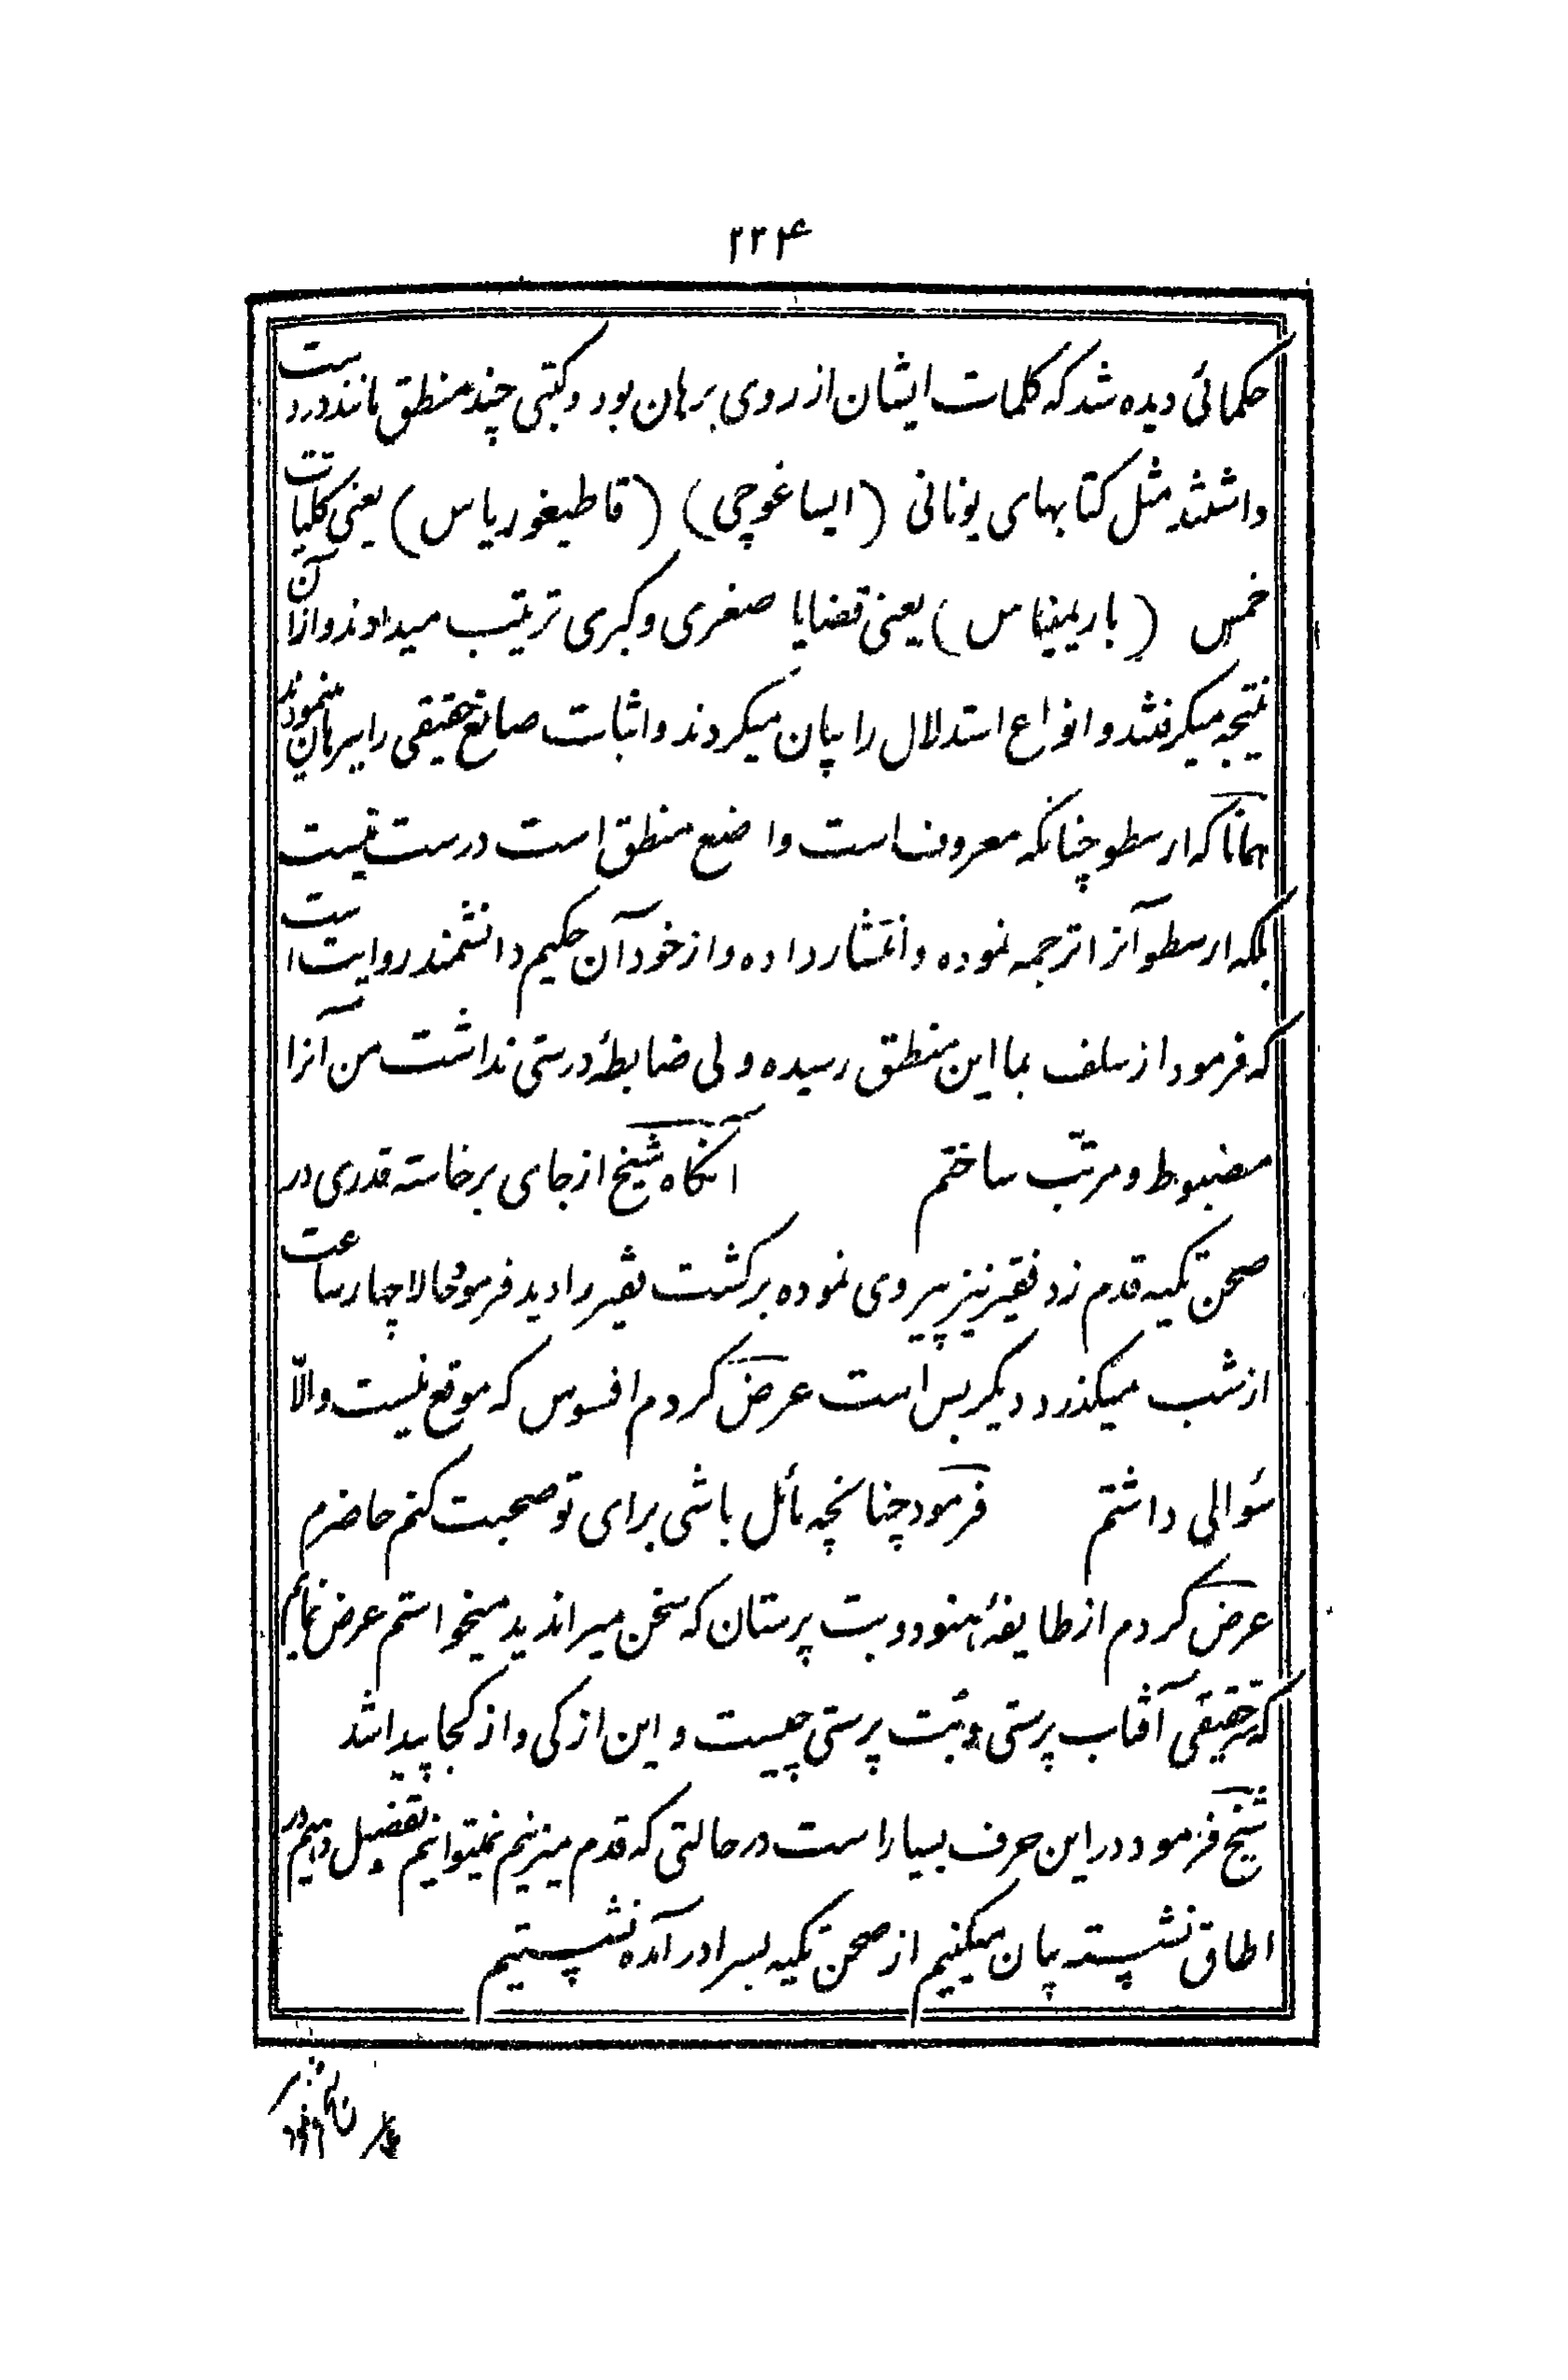 ۲۲۴
حکمائی دیده شد که کلمات ایشان از روی برهان بود و کتبی چند منطق مانند در دست
داشتند مثل کتابهای یونانی (ایساغوچی) (قاطیغوریاس) یعنی کلیات
خمس (باریمیناس) یعنی قضایا صغری و کبری ترتیب میدادند و از آن
نتیجه میکرفتند و انواع استدلال را بیان میکردند و اثبات صانع حقیقی را ببرهان مینمودند
همانا که ارسطو چنانکه معروفست واضع منطق است درست نیست
بلکه ارسطو آنرا ترجمه نموده و انتشار داده و از خود آن حکیم دانشمند روایت است
که فرمود از سلف بما این منطق رسیده ولی ضابطهٔ درستی نداشت من آنرا
مضبوط و مرتّب ساختم آنکاه شیخ از جای برخاسته قدری در
صحن تکیه قدم زد فقیر نیز پیروی نموده برکشت فقیر را دید فرمود حالا چهار ساعت
از شب میکذرد دیکر بس است عرض کردم افسوس که موقع نیست والّا
سئوالی داشتم فرمود چنانچه مائل باشی برای تو صحبت کنم حاضرم
عرض کردم از طایفهٔ هنود و بت پرستان که سخن میراندید میخواستم عرض نمایم
که حقیقی آفتاب پرستی و بت پرستی چیست و این از کی و از کجا پیدا شد
شیخ فرمود در این حرف بسیار است در حالتی که قدم میزنیم نمیتوانیم تفضیل دهیم در
اطاق نشسته بیان میکنیم از صحن تکیه بسرا درآمده نشستیم